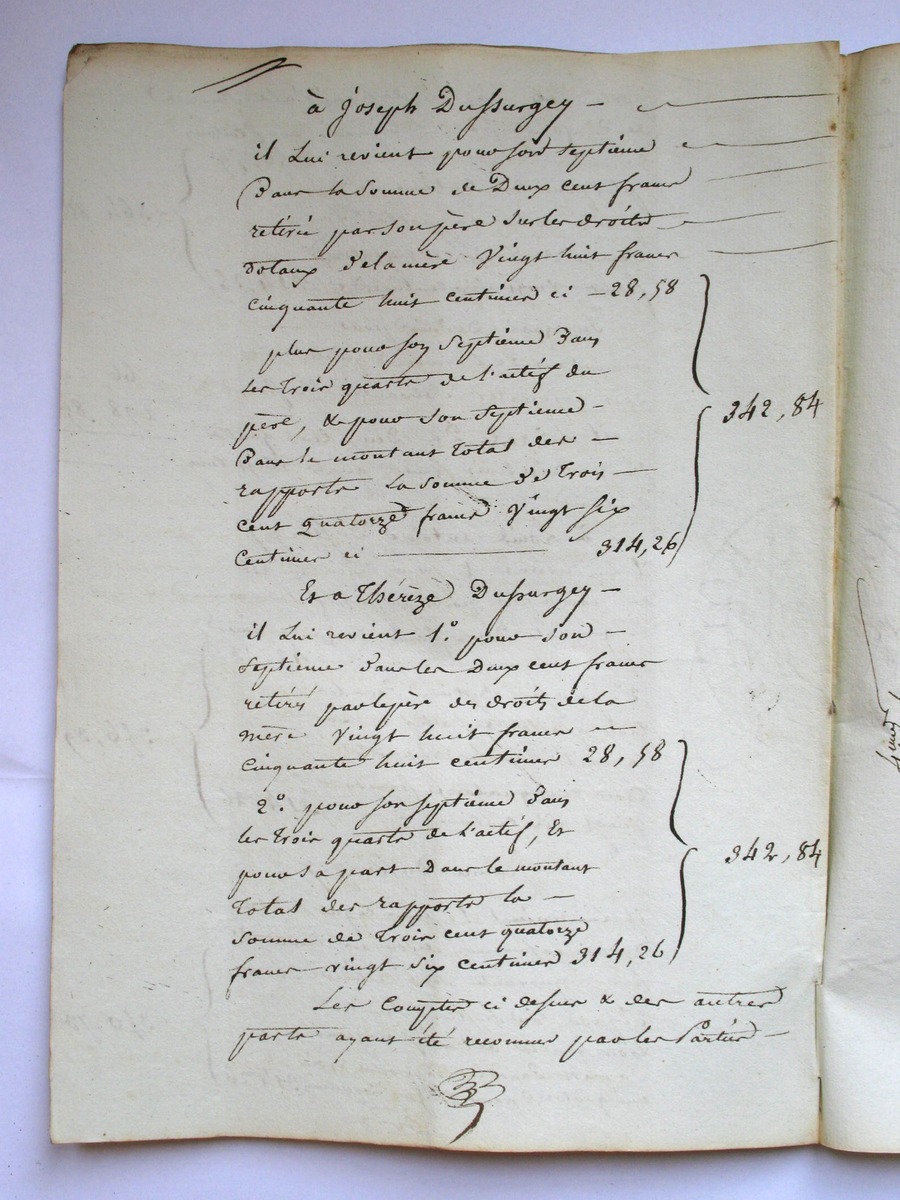 à Joseph Dussurgey —
il Lui revient pour son septième
Dans la Somme de Deux cent francs
retirée par son père sur les droits
dotaux de la mère Vingt huit francs
cinquante huit centimes ci — 28, 58
plus pour son septième Dans
les trois quarts de l'actif du
père, & pour son septième —
Dans le montant total des —
rapports la Somme de trois —
cent quatorze francs Vingt six
Centimes ci — 314, 26
342, 84
Et a Thérèze Dussurgey —
il Lui revient 1.° pour son —
septième dans les Deux cent francs
retirés par le père des droits de la
mère Vingt huit francs —
cinquante huit centimes 28, 58
2.° pour son septième dans
les trois quarts de l'actif, Et
pour sa part Dans le montant
total des rapports la —
Somme de trois cent quatorze
francs vingt six centimes 314, 26
342, 84
Les Comptes ci dessus & des autres
parts ayant été reconnus par les Parties —